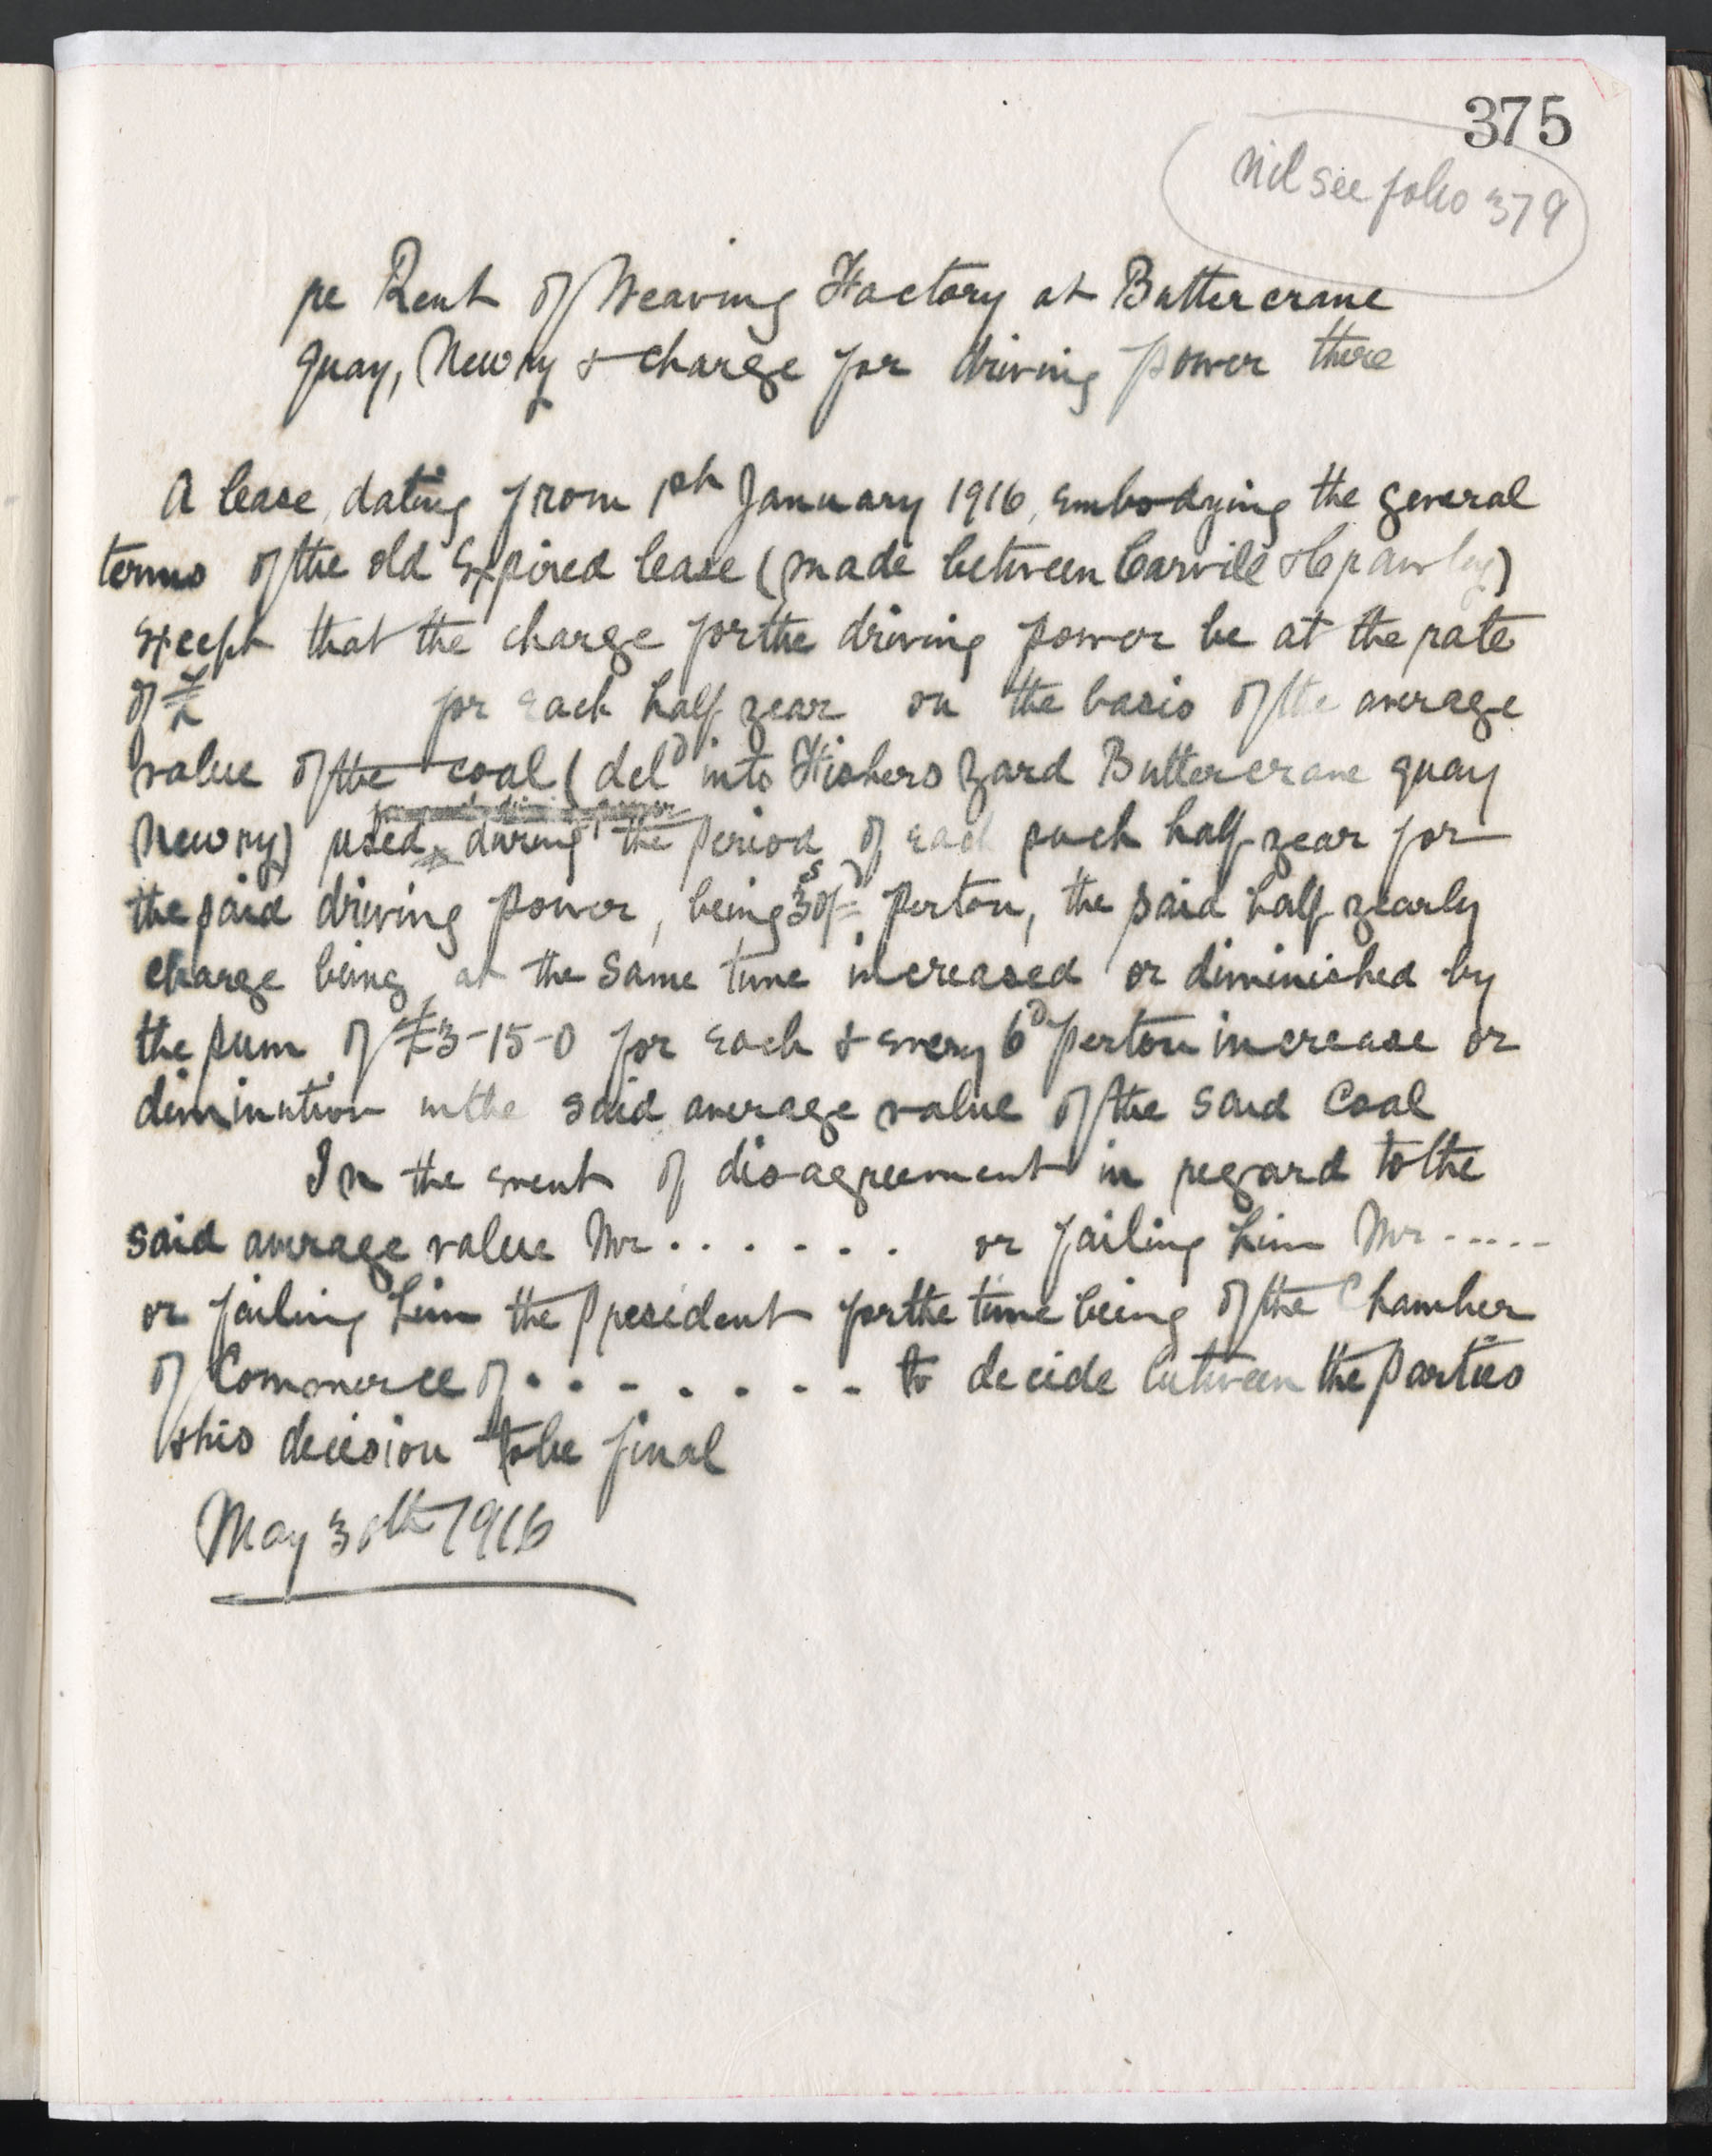 375
nil see folio 379
re Rent of Weaving Factory at Buttercrane
Quay, Newry & charge for driving power there
A lease, dating from 1st January 1916, embodying the general
terms of the old expired lease (made between Carvill &
except that the charge for the driving power be at the rate
of £ for each half year on the basis of the average
value of the coal (deld into Fishers Yard Buttercrane quay
Newry) used during the period of each such half year for
the said driving power, being 30s/=d per ton, the said half yearly
charge being at the same time increased or diminished by
the sum of £3-15-0 for each & every 6d per ton increase or
diminution in the said average value of the said Coal
In the event of disagreement in regard to the
said average value Mr . . . . . . or failing him Mr .....
or failing him the President for the time being of the Chamber
of Commerce of . . . . . . . . to decide between the parties
& his decision to be final
May 30th 1916